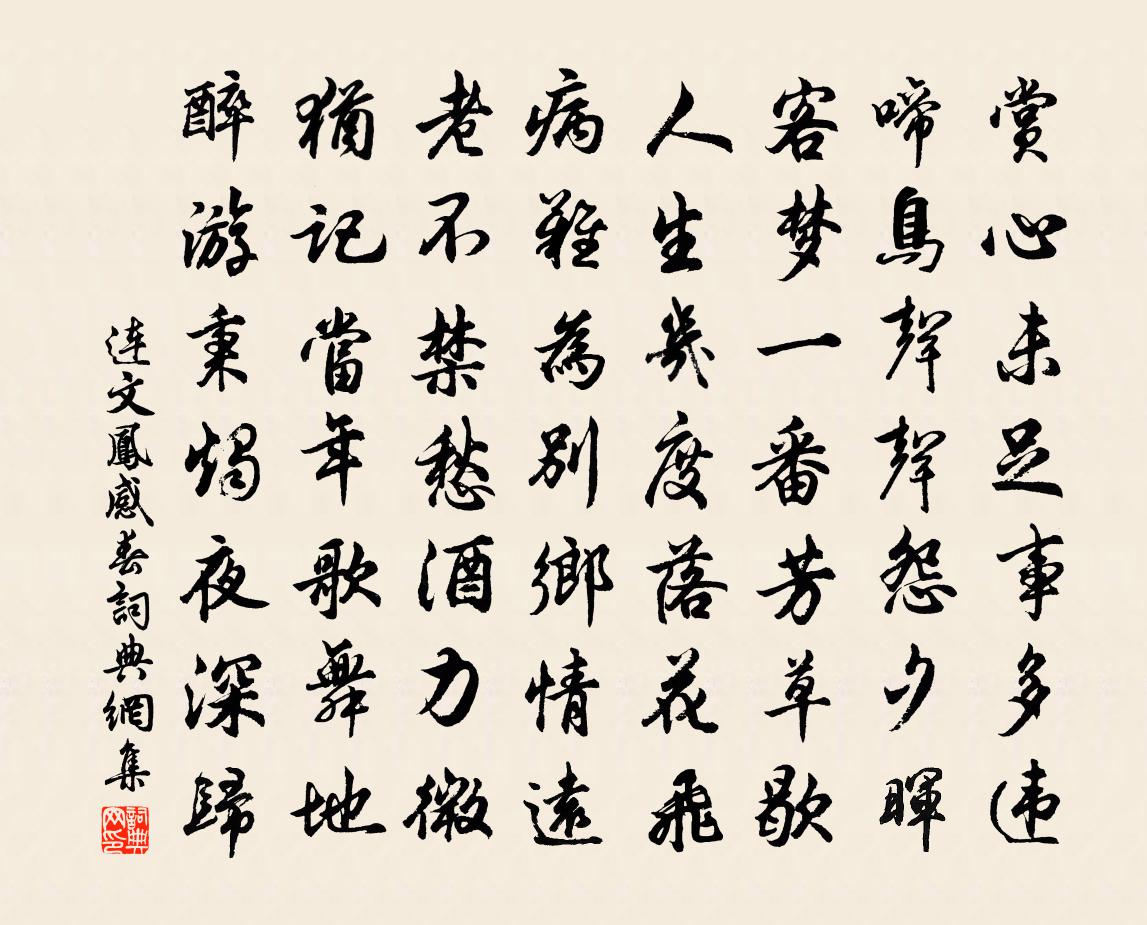 賞心未足事多違
啼鳥聲聲怨夕暉
客梦一番芳草歇
人生幾度落花飛
病難為別鄉情遠
老不禁愁酒力微
猶記當年歌舞地
醉游秉燭夜深歸
连文鳳感春詞典網集
詞典网印